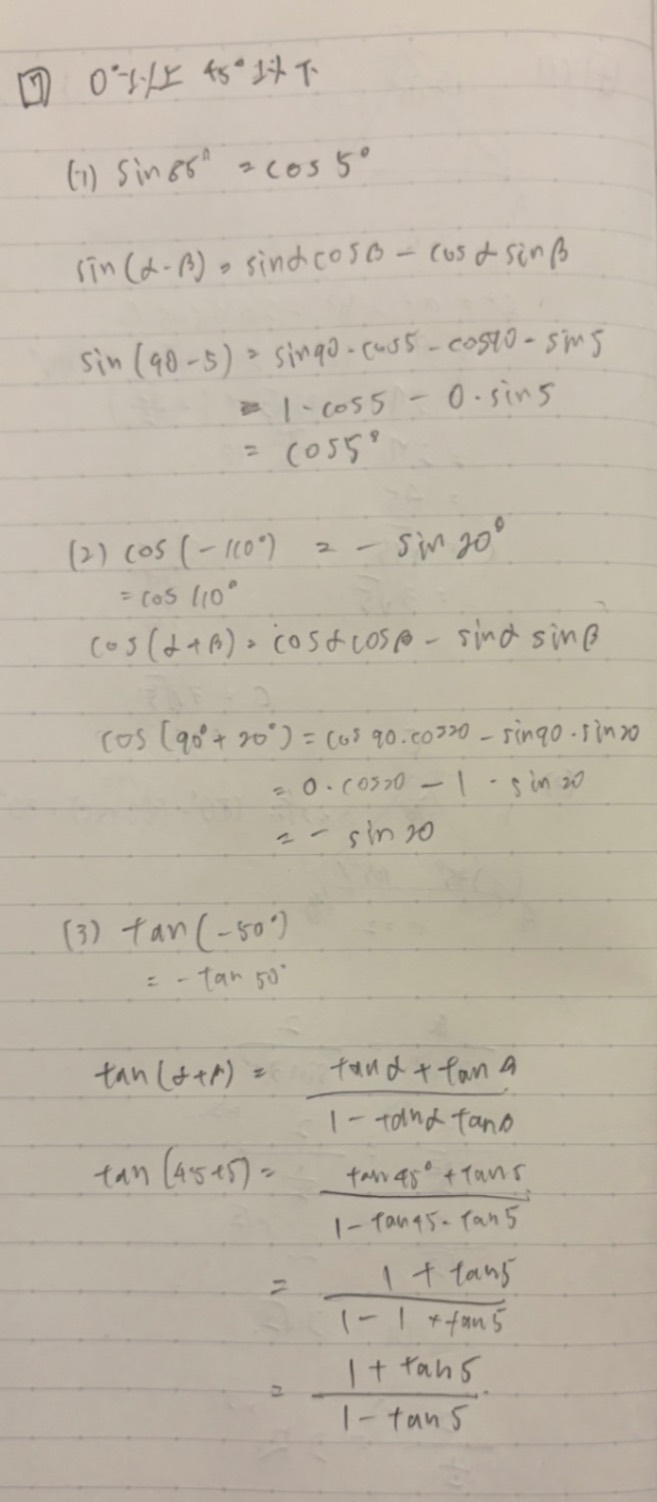 [7] 0°以上 45°以下
(1) sin 85° = cos 5°
sin(α-β) = sinαcosβ - cosαsinβ
sin(90-5) = sin90・cos5 - cos90・sin5
= 1・cos5 - 0・sin5
= cos5°
(2) cos(-110°) = - sin 20°
= cos 110°
cos(α+β) = cosαcosβ - sinα sinβ
cos(90°+20°) = cos 90・cos20 - sin90・sin20
= 0・cos20 - 1・sin 20
= - sin 20
(3) tan(-50°)
= - tan 50°
tan(α+β) = tanα + tanβ
1 - tanα tanβ
tan(45+5) = tan 45° + tan 5
1 - tan45・tan 5
= 1 + tan5
1 - 1 × tan 5
= 1 + tan 5
1 - tan 5